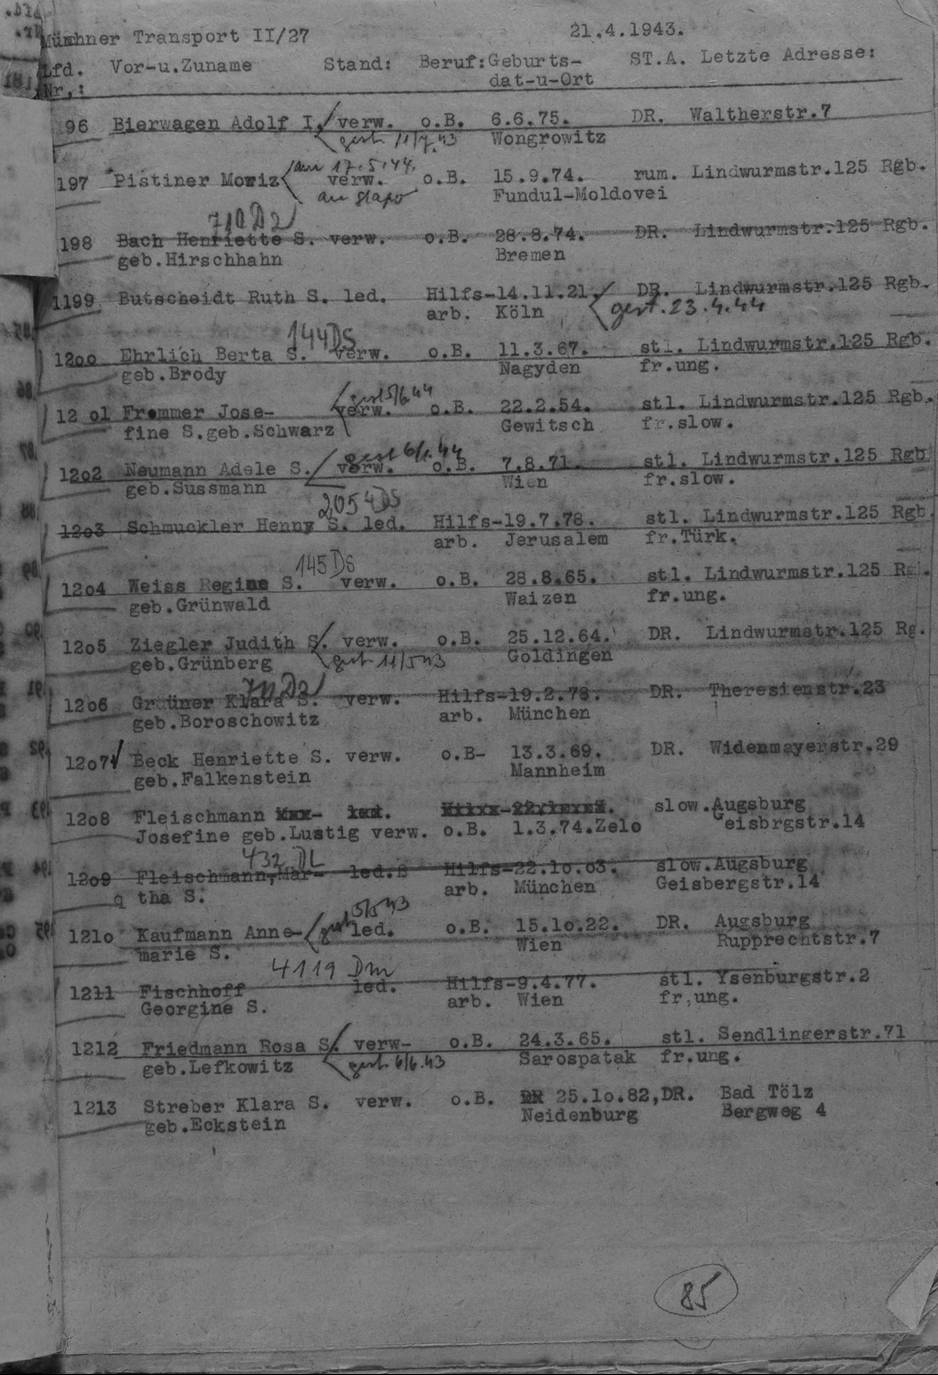 Münchner Transport II/27 21.4.1943.
Lfd. Vor-u.Zuname Stand: Beruf: Geburts- ST.A. Letzte Adresse:
Nr.: dat-u-Ort
96 Bierwagen Adolf I. verw. o.B. 6.6.75. DR. Waltherstr.7
gest. Wongrowitz
am 17.5.44.
197 Pistiner Moriz verw. o.B. 15.9.74. rum. Lindwurmstr.125 Rgb.
an Stapo Fundul-Moldovei
710 Dz
198 Bach Henriette S. verw. o.B. 28.8.74. DR. Lindwurmstr.125 Rgb.
geb.Hirschhahn Bremen
1199 Butscheidt Ruth S. led. Hilfs- 14.11.21. DR. Lindwurmstr.125 Rgb.
arb. Köln gest. 23.4.44
144 Ds
12oo Ehrlich Berta S. verw. o.B. 11.3.67. stl. Lindwurmstr.125 Rgb.
geb.Brody Nagyden fr.ung.
gest 5/6 44
12 o1 Frommer Jose- verw. o.B. 22.2.54. stl. Lindwurmstr.125 Rgb.
fine S.geb.Schwarz Gewitsch fr.slow.
gest 44
12o2 Neumann Adele S. verw. o.B. 7.8.71. stl. Lindwurmstr.125 Rgb
geb.Sussmann Wien fr.slow.
2054 Ds
12o3 Schmuckler Henny S. led. Hilfs- 19.7.78. stl. Lindwurmstr.125 Rgb.
arb. Jerusalem fr.Türk.
145 Ds
12o4 Weiss Regine S. verw. o.B. 28.8.65. stl. Lindwurmstr.125 Rg.
geb.Grünwald Waizen fr.ung.
12o5 Ziegler Judith S. verw. o.B. 25.12.64. DR. Lindwurmstr.125 Rg.
geb.Grünberg gest. 11/5 43 Goldingen
12o6 Grüner Klara S. verw. Hilfs- 19.2.78. DR. Theresienstr.23
geb.Boroschowitz arb. München
12o7 Beck Henriette S. verw. o.B- 13.3.69. DR. Widenmayerstr.29
geb.Falkenstein Mannheim
12o8 Fleischmann slow. Augsburg
Josefine geb.Lustig verw. o.B. 1.3.74.Zelo Geisbrgstr.14
432 DL
12o9 Fleischmann, Mar- led. Hilfs- 22.1o.o3. slow. Augsburg
tha S. arb. München Geisbergstr.14
gest 5/5 43
121o Kaufmann Anne- led. o.B. 15.1o.22. DR. Augsburg
marie S. Wien Rupprechtstr.7
4119 Dm
1211 Fischhoff led. Hilfs- 9.4.77. stl. Ysenburgstr.2
Georgine S. arb. Wien fr,ung.
1212 Friedmann Rosa S. verw- o.B. 24.3.65. stl. Sendlingerstr.71
geb.Lefkowitz gest. 6/6.43 Sarospatak fr.ung.
1213 Streber Klara S. verw. o.B. 25.1o.82, DR. Bad Tölz
geb.Eckstein Neidenburg Bergweg 4
85